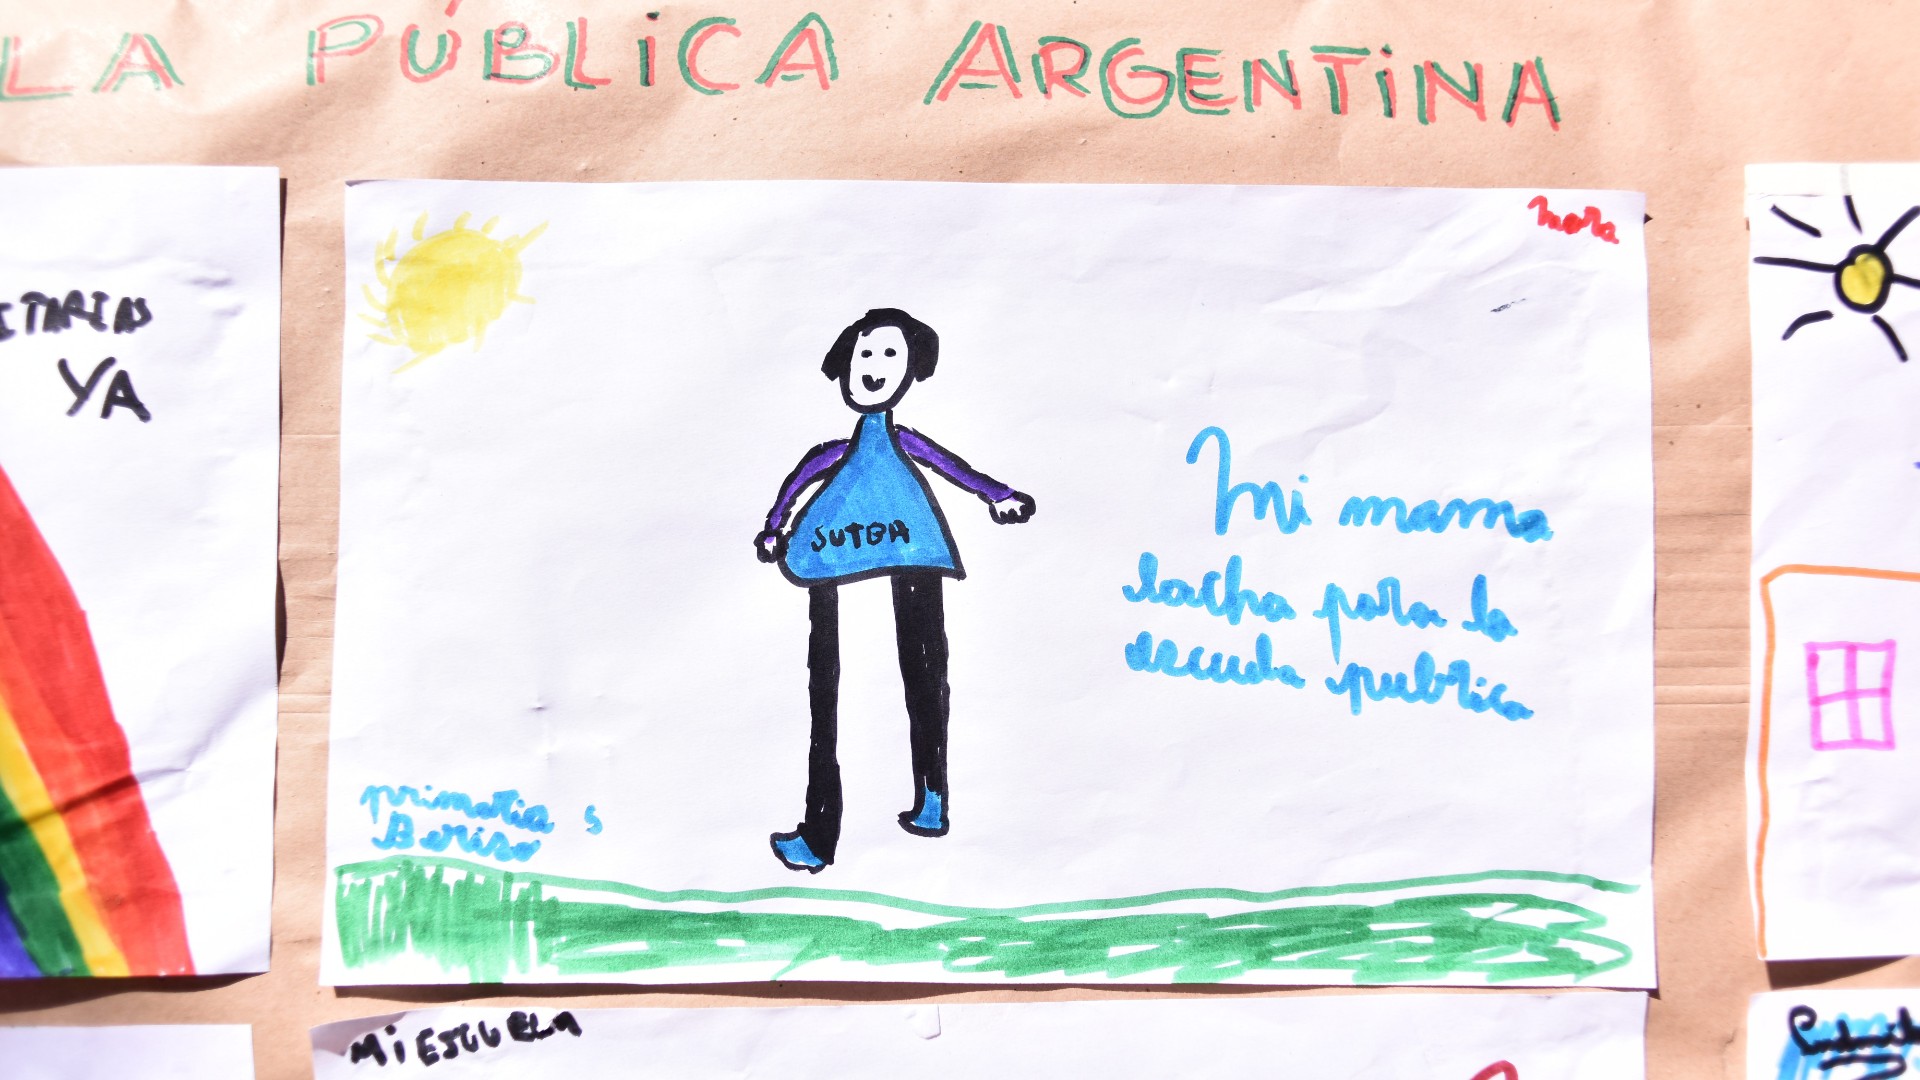 LA PÚBLICA ARGENTINA
ITARIAS
YA
Mora
SUTEBA
Mi mama
lucha para la
escuela publica
primaria 5
Beriso
MI ESCUELA